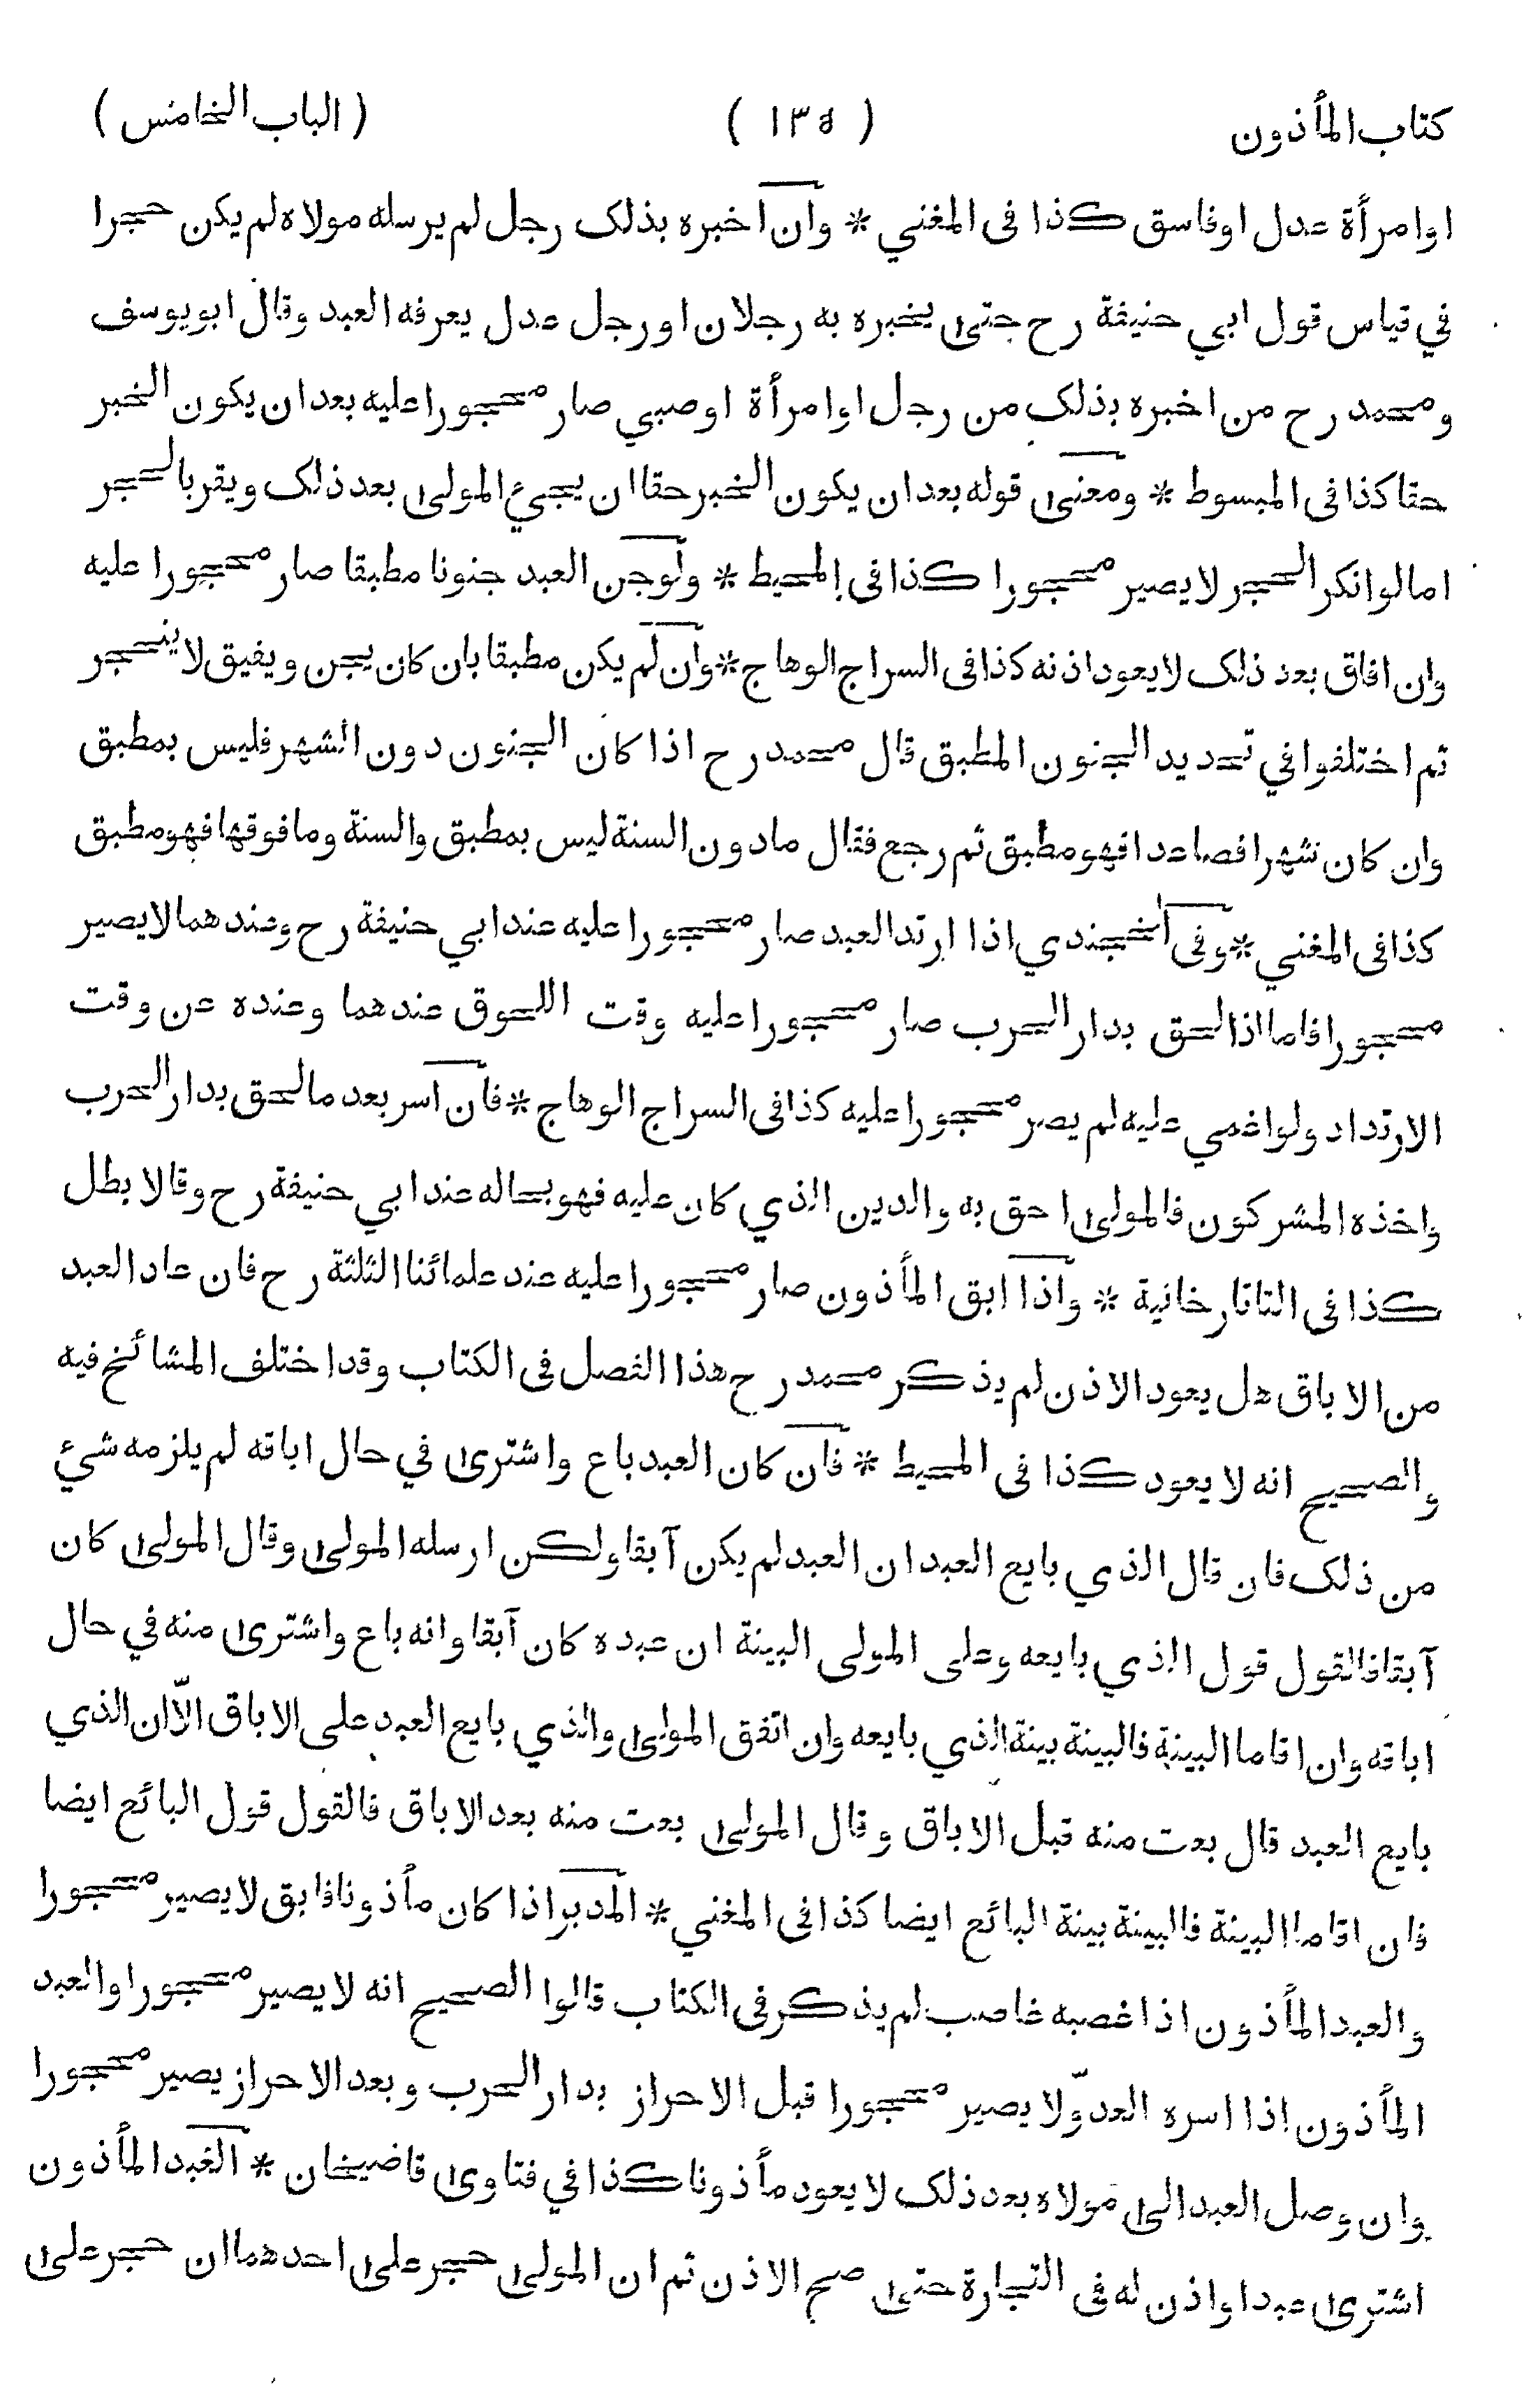 كتاب المأذون ( ١٣٥ ) ( الباب الخامس )
او امرأة عدل او فاسق كذا فى المغني * وان اخبره بذلک رجل لم يرسله مولاه لم يكن حجرا
في قياس قول ابي حنيفة رح حتى يخبره به رجلان او رجل عدل يعرفه العبد وقال ابو يوسف
ومحمد رح من اخبره بذلک من رجل او امرأة او صبي صار محجورا عليه بعد ان يكون الخبر
حقا كذا فى المبسوط * ومعنى قوله بعد ان يكون الخبر حقا ان يجيئ المولى بعد ذلک ويقر بالحجر
اما لو انكر الحجر لا يصير محجورا كذا فى المحيط * ولو جن العبد جنونا مطبقا صار محجورا عليه
وان افاق بعد ذلک لا يعود اذنه كذا فى السراج الوهاج * وان لم يكن مطبقا بان كان يجن ويفيق لا ينحجر
ثم اختلفوا في تحديد الجنون المطبق قال محمد رح اذا كان الجنون دون الشهر فليس بمطبق
وان كان شهرا فصاعدا فهو مطبق ثم رجع فقال ما دون السنة ليس بمطبق والسنة وما فوقها فهو مطبق
كذا فى المغني * وفى الخجندي اذا ارتد العبد صار محجورا عليه عند ابي حنيفة رح وعندهما لا يصير
محجورا فاما اذا لحق بدار الحرب صار محجورا عليه وقت اللحوق عندهما وعنده عن وقت
الارتداد ولو اغمي عليه لم يصر محجورا عليه كذا فى السراج الوهاج * فان اسر بعد ما لحق بدار الحرب
واخذه المشركون فالمولى احق به والدين الذي كان عليه فهو بحاله عند ابي حنيفة رح وقالا بطل
كذا فى التاتارخانية * واذا ابق المأذون صار محجورا عليه عند علمائنا الثلثة رح فان عاد العبد
من الاباق هل يعود الاذن لم يذكر محمد رح هذا الفصل فى الكتاب وقد اختلف المشائخ فيه
والصحيح انه لا يعود كذا فى المحيط * فان كان العبد باع واشترى في حال اباقه لم يلزمه شئ
من ذلک فان قال الذي بايع العبد ان العبد لم يكن آبقا ولكن ارسله المولى وقال المولى كان
آبقا فالقول قول الذي بايعه وعلى المولى البينة ان عبده كان آبقا وانه باع واشترى منه في حال
اباقه وان اقاما البينة فالبينة بينة الذي بايعه وان اتفق المولى والذي بايع العبد على الاباق الّا ان الذي
بايع العبد قال بعت منه قبل الاباق وقال المولى بعت منه بعد الاباق فالقول قول البائع ايضا
فان اقاما البينة فالبينة بينة البائع ايضا كذا فى المغني * المدبر اذا كان مأذونا فابق لا يصير محجورا
والعبد المأذون اذا غصبه غاصب لم يذكر فى الكتاب قالوا الصحيح انه لا يصير محجورا والعبد
المأذون اذا اسره العدوّ لا يصير محجورا قبل الاحراز بدار الحرب وبعد الاحراز يصير محجورا
وان وصل العبد الى مولاه بعد ذلک لا يعود مأذونا كذا في فتاوى قاضيخان * العبد المأذون
اشترى عبدا واذن له فى التجارة حتى صح الاذن ثم ان المولى حجر على احدهما ان حجر على